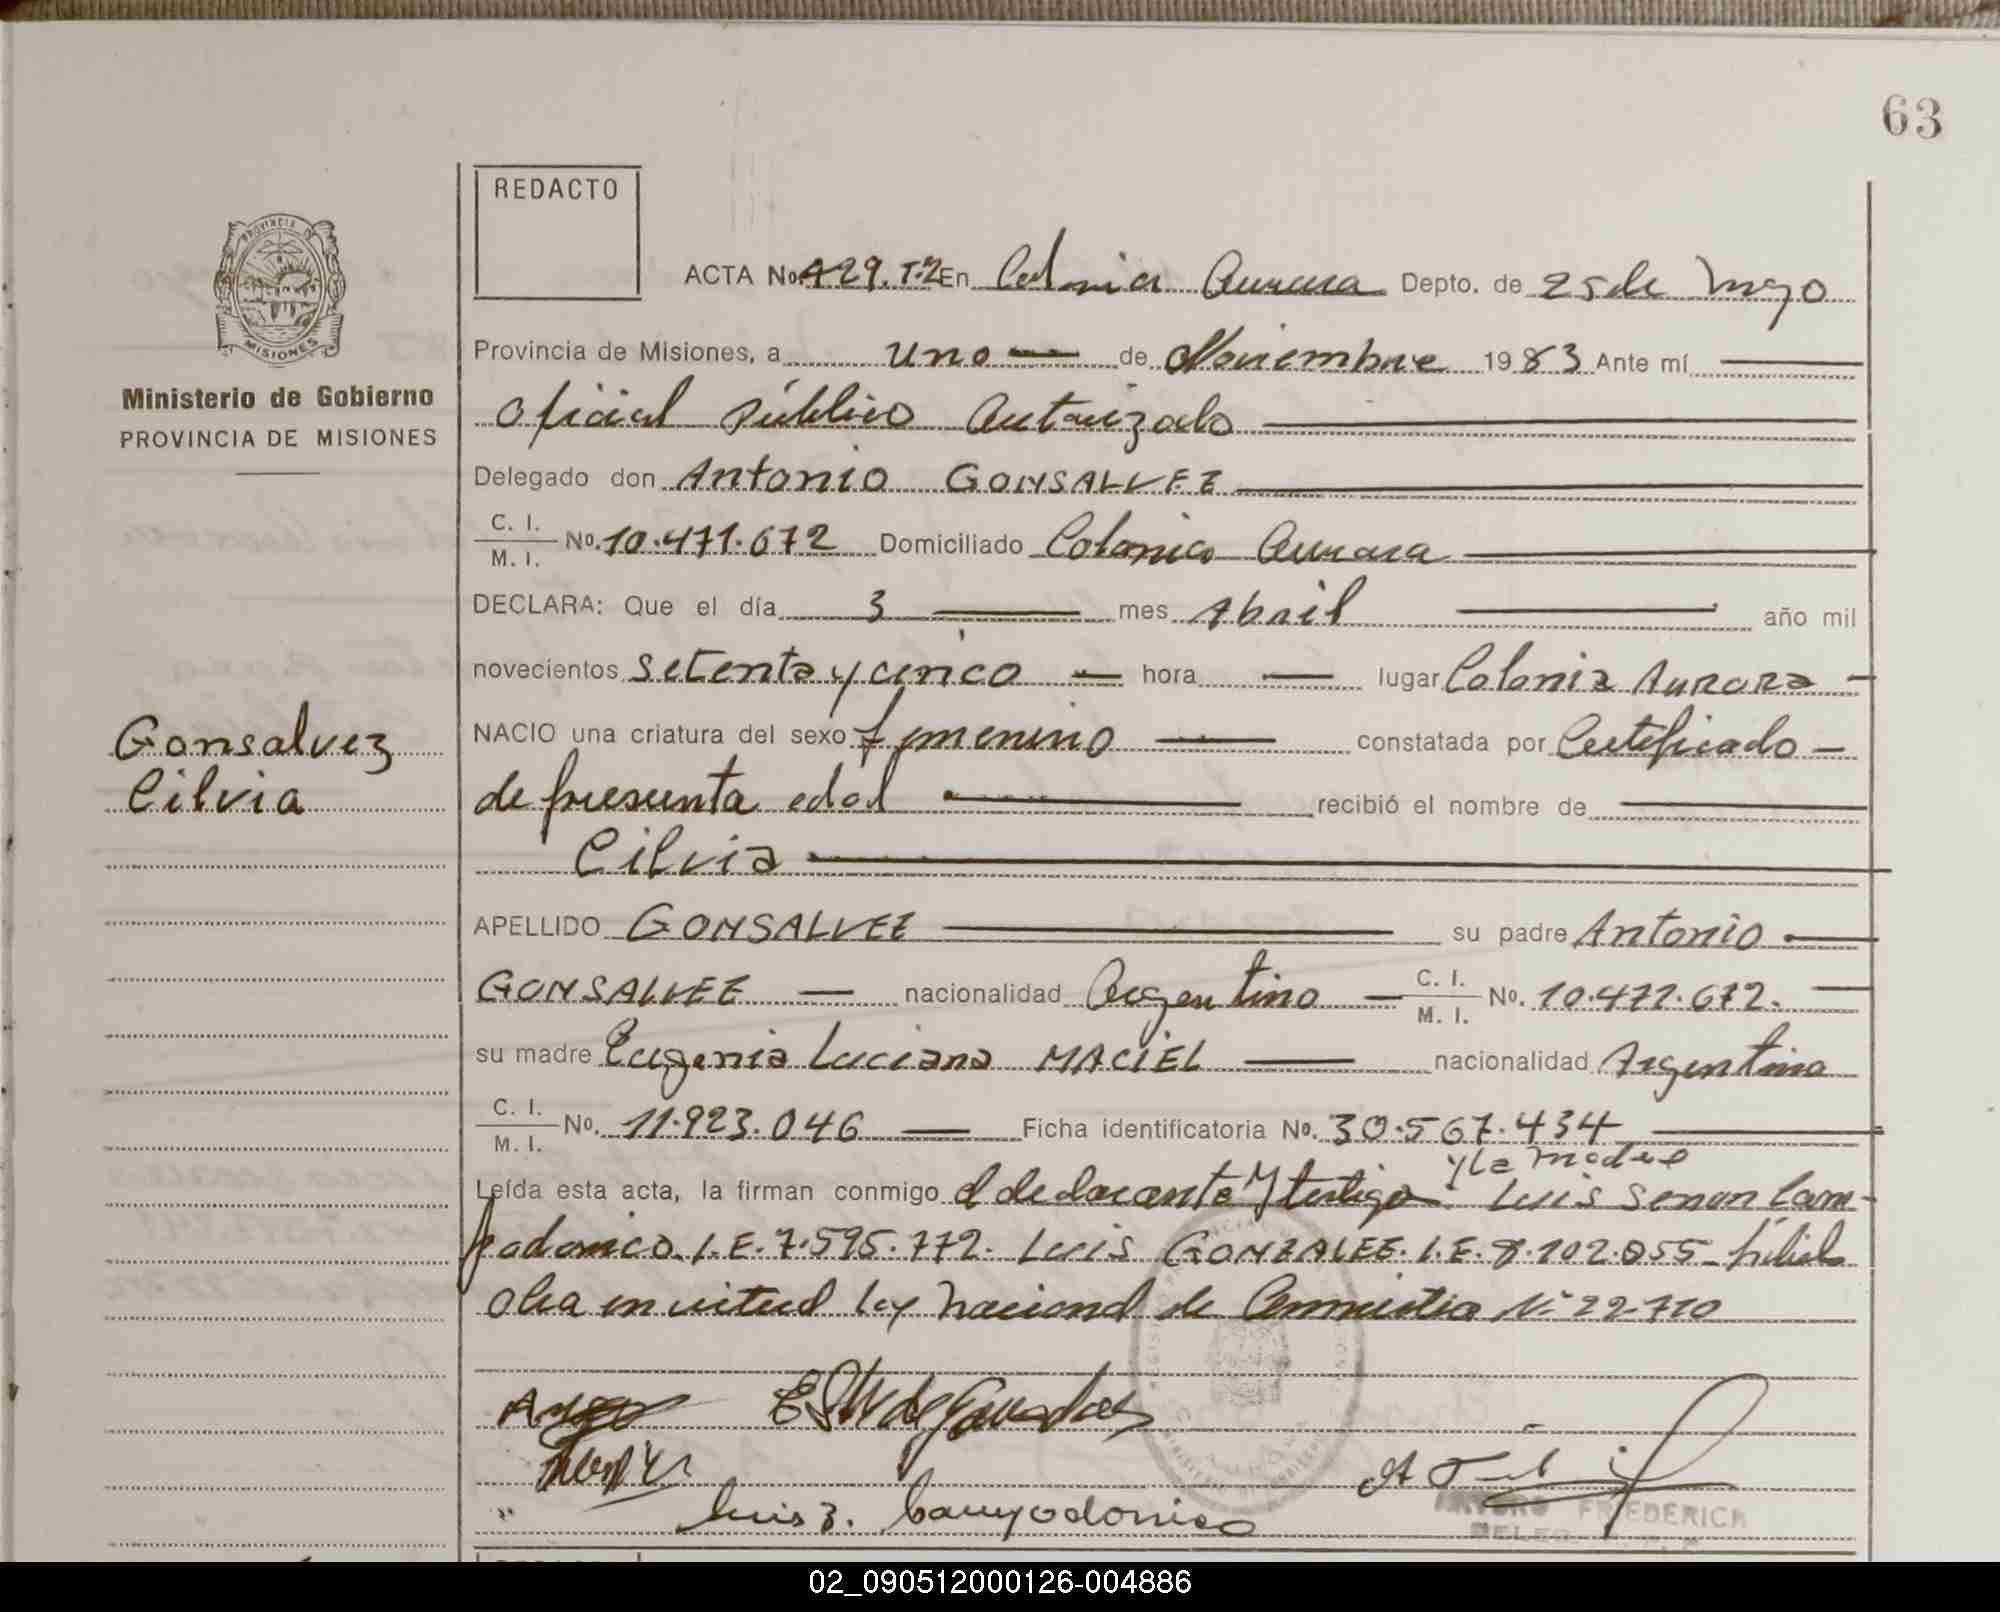 63
REDACTO
PROVINCIA DE
MISIONES
Ministerio de Gobierno
PROVINCIA DE MISIONES
ACTA No. 429. T-2 En Colonia Aurora Depto. de 25 de Mayo
Provincia de Misiones, a uno de Noviembre 1983 Ante mí
Oficial Público Autorizado
Delegado don Antonio GONSALVEZ
C. I. / M. I. No. 10.471.672 Domiciliado Colonia Aurora
DECLARA: Que el día 3 mes Abril año mil
novecientos setenta y cinco hora lugar Colonia Aurora
Gonsalvez
Cilvia
NACIO una criatura del sexo femenino constatada por Certificado
de presunta edad recibió el nombre de
Cilvia
APELLIDO GONSALVEZ su padre Antonio
GONSALVEZ nacionalidad Argentino C. I. / M. I. No. 10.471.672.
su madre Eugenia Luciana MACIEL nacionalidad Argentina
C. I. / M. I. No. 11.923.046 Ficha identificatoria No. 30.567.434
y la madre
Leída esta acta, la firman conmigo el declarante y testigo Luis Senon Cam-
podonico. I.E. 7.595.772. Luis GONZALEZ. I.E. 8.102.055
en virtud ley Nacional de Amnistia N° 22.710
Luis Z. Campodonico
ARTURO FRIEDERICH
02_090512000126-004886